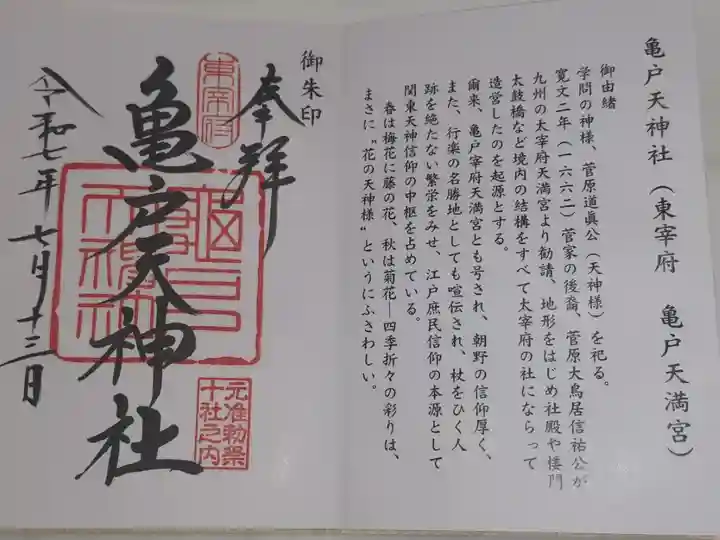 亀戸天神社(東宰府 亀戸天満宮)
御由緒
学問の神様、菅原道眞公(天神様)を祀る。
寛文二年(一六六二)菅家の後裔、菅原大鳥居信祐公が
九州の太宰府天満宮より勧請、地形をはじめ社殿や楼門
太鼓橋など境内の結構をすべて太宰府の社にならって
造営したのを起源とする。
爾来、亀戸宰府天満宮とも号され、朝野の信仰厚く、
また、行楽の名勝地としても喧伝され、杖をひく人
跡を絶たない繁栄をみせ、江戸庶民信仰の本源として
関東天神信仰の中枢を占めている。
春は梅花に藤の花、秋は菊花―四季折々の彩りは、
まさに〝花の天神様〟というにふさわしい。
御朱印
奉拝
東宰府
亀戸天神社
元准勅祭
十社之内
令和七年七月十三日